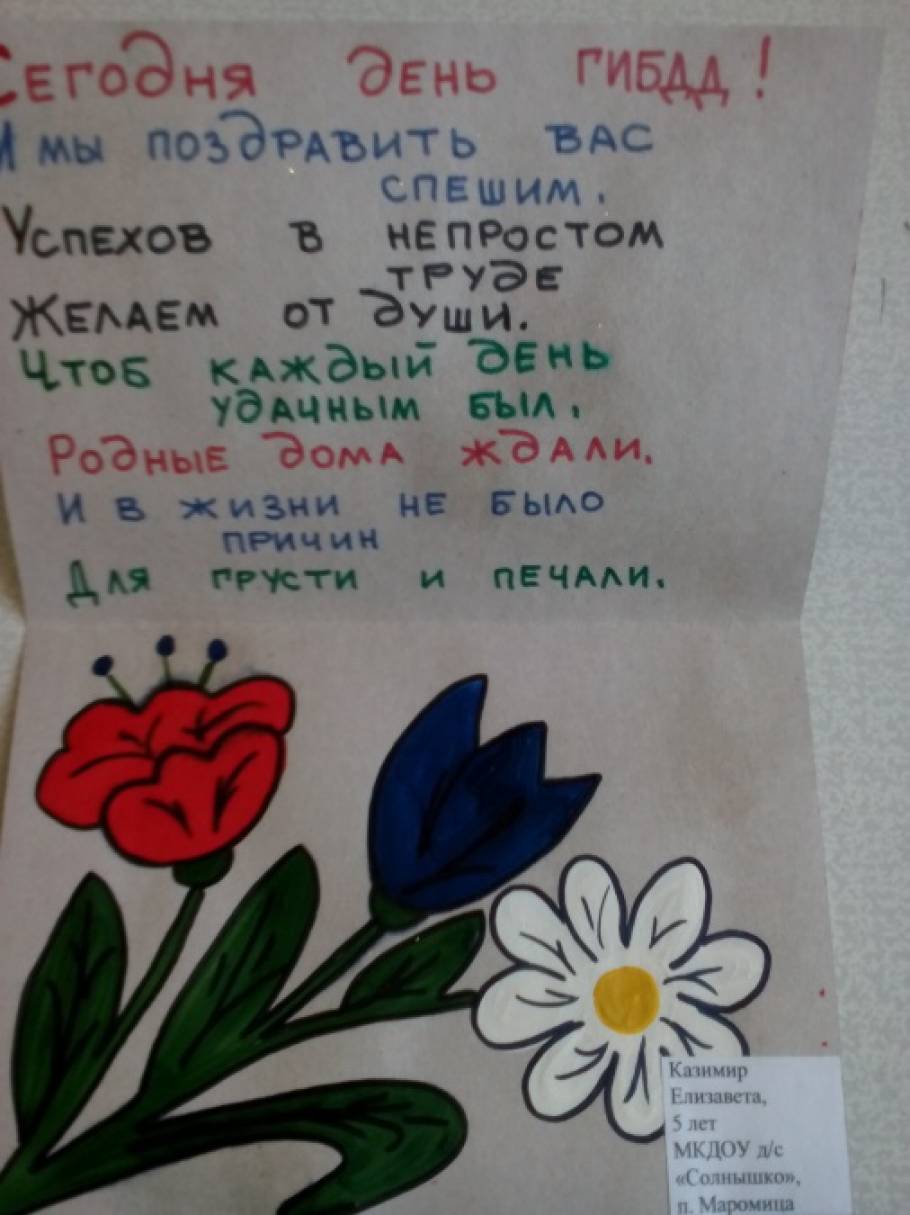 Сегодня день ГИБДД!
И мы поздравить вас
спешим.
Успехов в непростом
труде
Желаем от души.
Чтоб каждый день
удачным был,
Родные дома ждали.
И в жизни не было
причин
Для грусти и печали.
Казимир
Елизавета,
5 лет
МКДОУ д/с
«Солнышко»,
п. Маромица